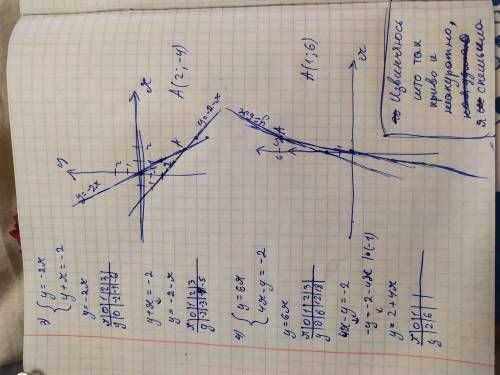 3) { y = -2x
y + x = -2
y = -2x
x | 0 | 1 | 2 | 3 |
y | 0 | -2 | -4 | -6
y + x = -2
y = -2 - x
x | 0 | 1 | 2 | 3
y | -2 | -3 | -4 | -5
y
x
y=-2x
y=-2-x
A
A(2;-4)
4) { y = 6x
4x - y = -2
y = 6x
x | 0 | 1 | 2 | 3 |
y | 0 | 6 | 12 | 18 |
4x - y = -2
-y = -2 - 4x |·(-1)
y = 2 + 4x
x | 0 | 1 |
y | 2 | 6 |
A
6
1
x
A(1;6)
Извиняюсь
что так
криво и
неаккуратно,
я спешила